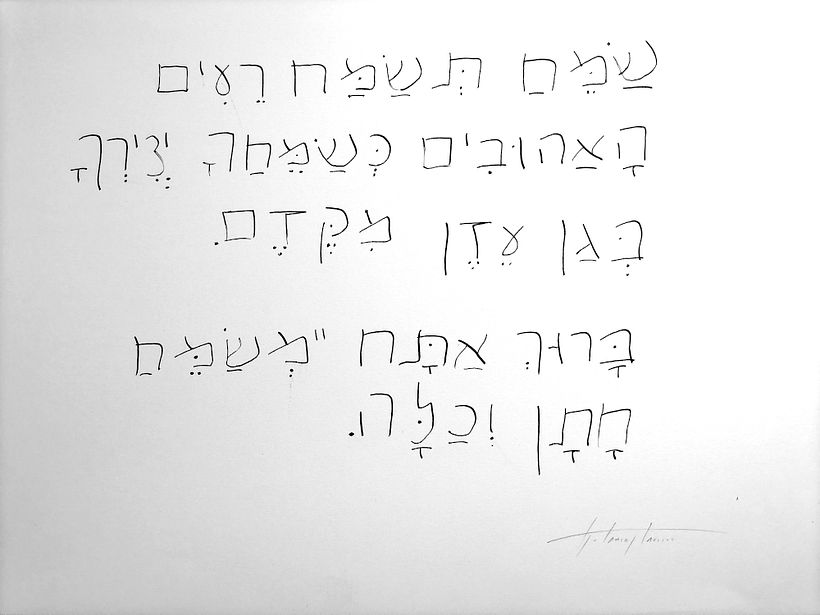 שַׂמֵּחַ תְּשַׂמַּח רֵעִים
הָאַהוּבִים כְּשַׂמֵּחַךָ יְצִירְךָ
בְּגַן עֵדֶן מִקֶּדֶם.
בָּרוּךְ אַתָּח ״מְשַׂמֵּחַ
חָתָן וְכַלָּה.